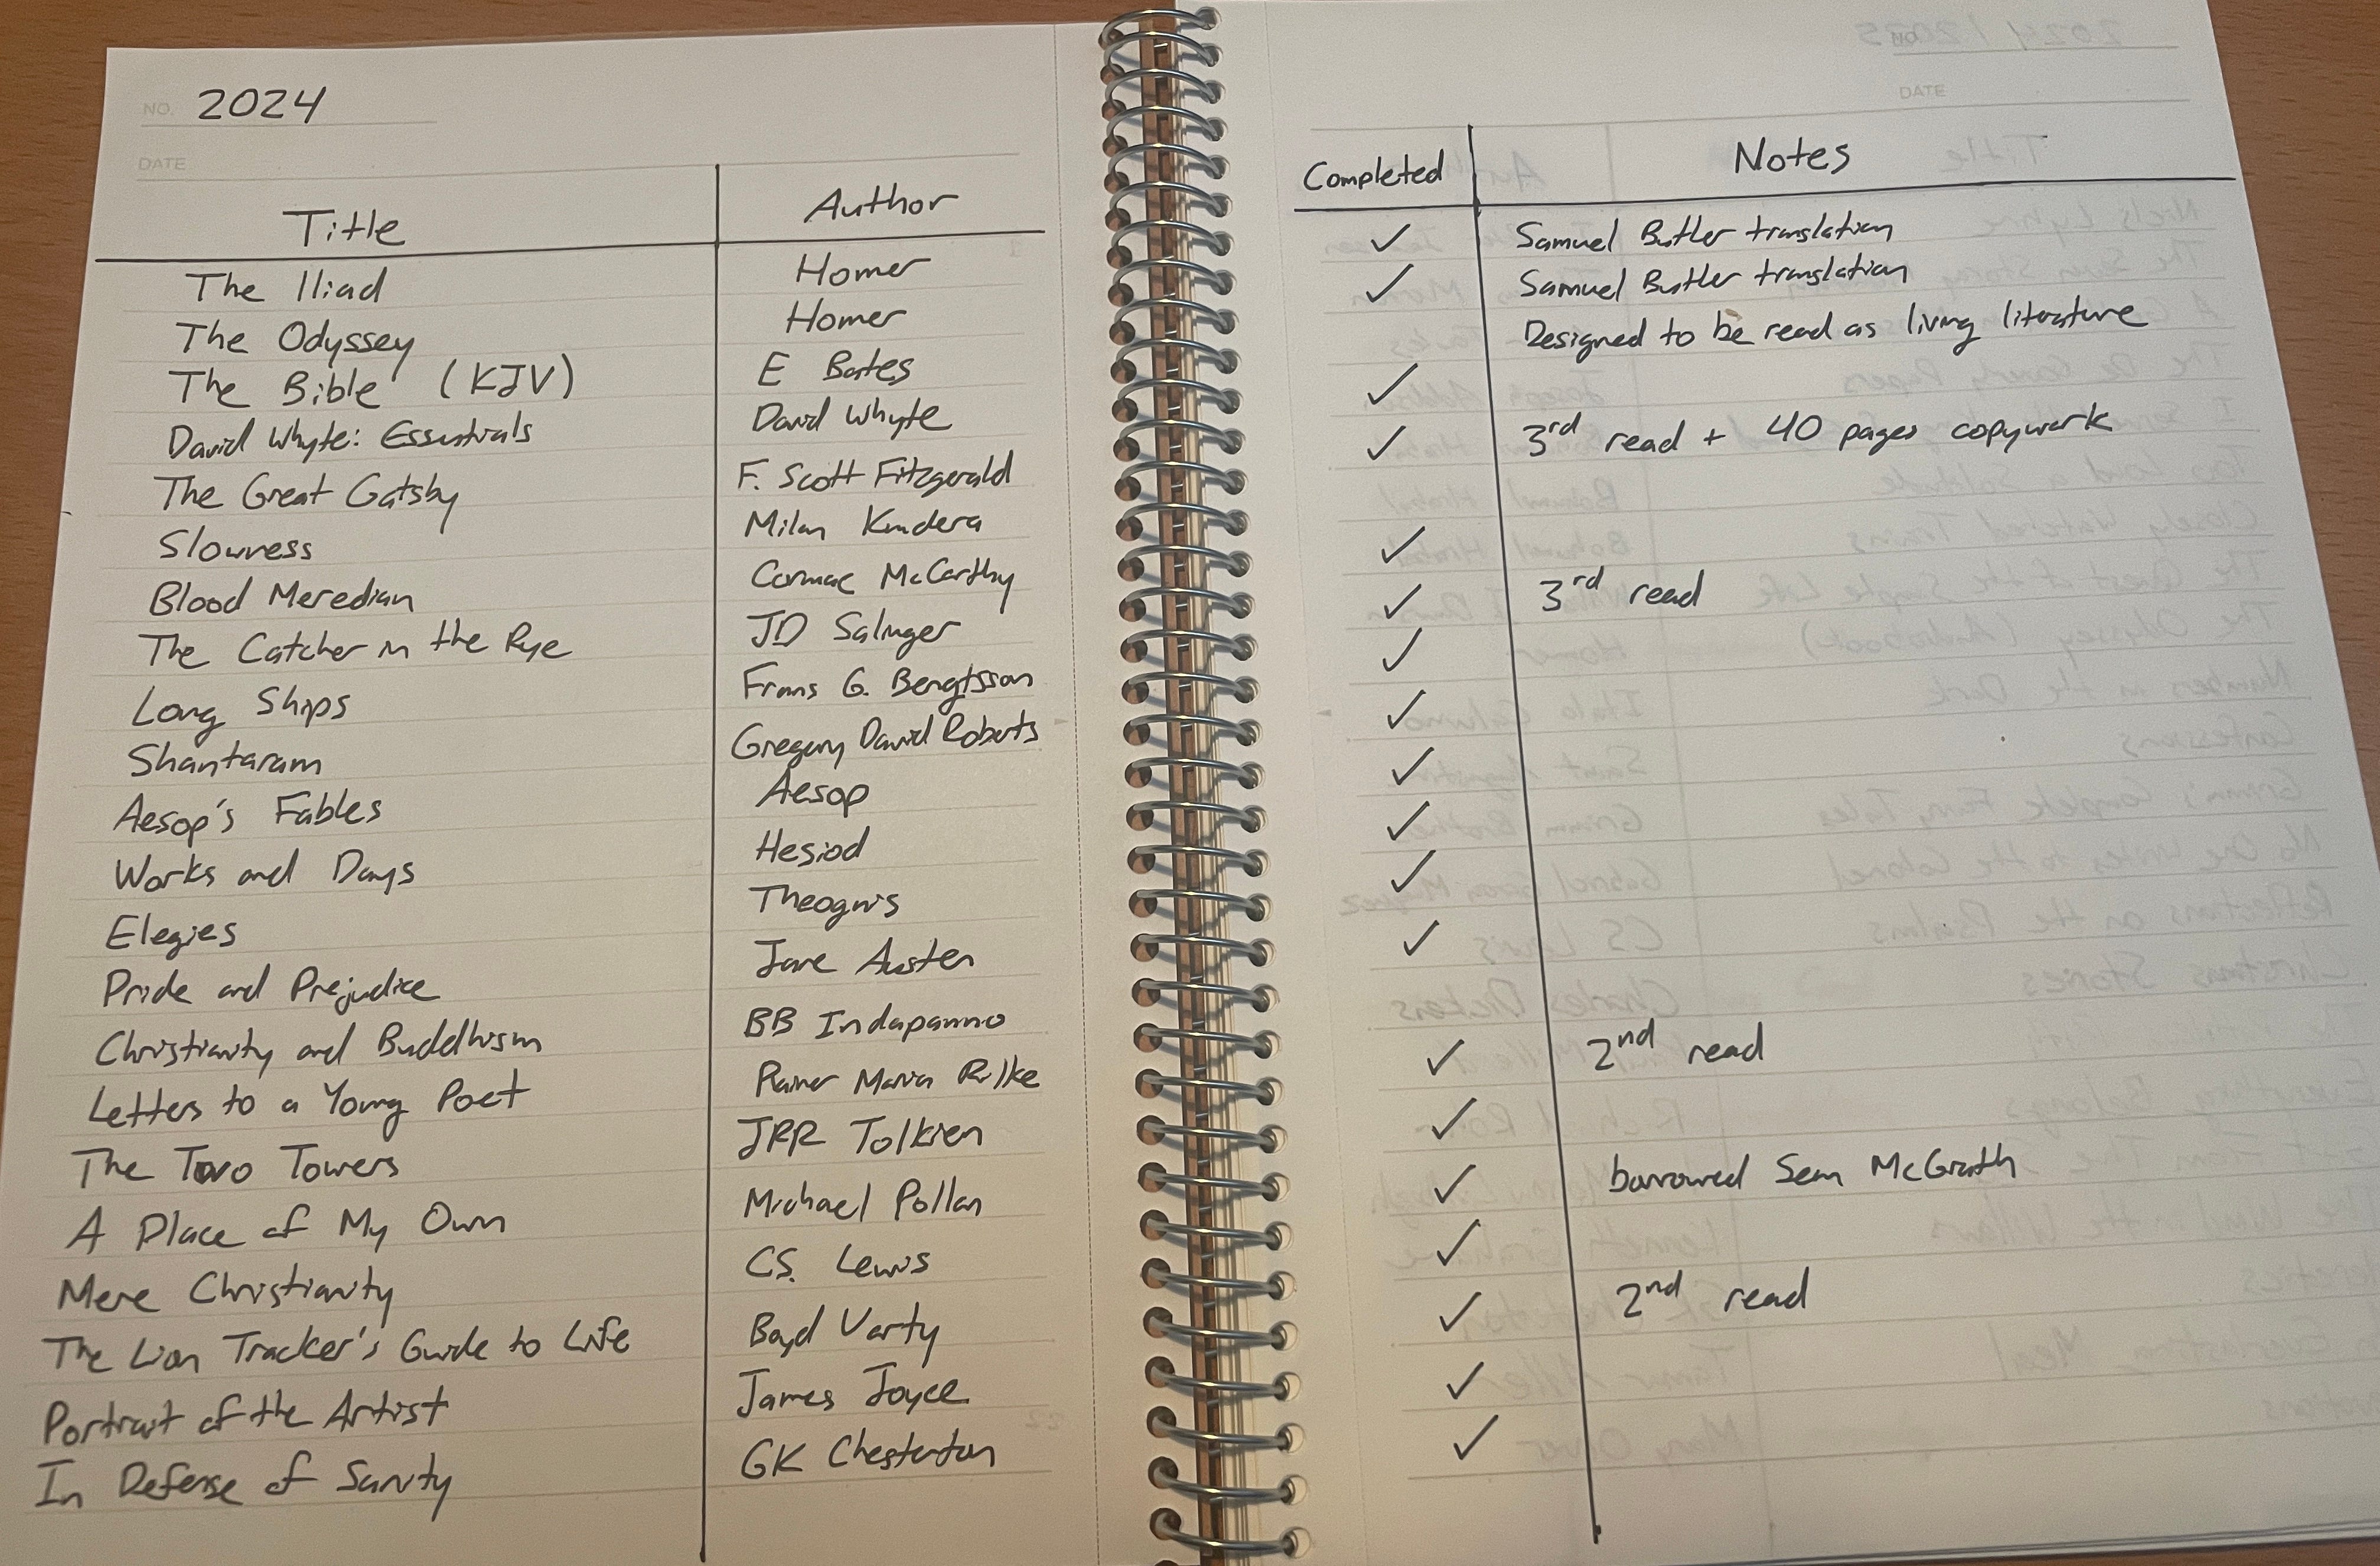 NO. 2024
DATE
Title Author
The Iliad Homer
The Odyssey Homer
The Bible (KJV) E Bates
David Whyte: Essentials David Whyte
The Great Gatsby F. Scott Fitzgerald
Slowness Milan Kundera
Blood Meredian Cormac McCarthy
The Catcher in the Rye JD Salinger
Long Ships Frans G. Bengtsson
Shantaram Gregory David Roberts
Aesop's Fables Aesop
Works and Days Hesiod
Elegies Theognis
Pride and Prejudice Jane Austen
Christianity and Buddhism BB Indapanno
Letters to a Young Poet Rainer Maria Rilke
The Two Towers JRR Tolkien
A Place of My Own Michael Pollan
Mere Christianity CS. Lewis
The Lion Tracker's Guide to Life Boyd Varty
Portrait of the Artist James Joyce
In Defense of Sanity GK Chesterton
DATE
Completed Notes
✓ Samuel Butler translation
✓ Samuel Butler translation
Designed to be read as living literature
✓
✓ 3rd read + 40 pages copywork
✓
✓ 3rd read
✓
✓
✓
✓
✓
✓
✓ 2nd read
✓
✓ borrowed Sean McGrath
✓
✓ 2nd read
✓
✓